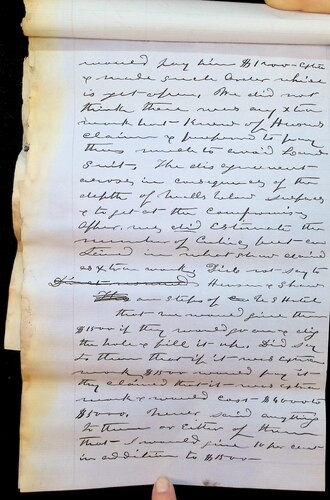 would pay him $1500 - Extra
& made such order which
is yet open, We did not
think there was any xtra
work but knew of Huson's
claim & proposed to pay
them to avoid Law
Suit, The disagreement
arose in consequence of the
depth of walls below surface
& to get at the compromise
Offer. we did Estimate the
number of Cubic feet
in what Shaw claimed
as xtra work, Did not say to
Huson & Shaw
on steps of U S Hotel
that we would give the
$1500 if they would go on & dig
the hole & fill it up. Did say
to them that if it was extra
work $1500 would pay it
they claimed that it was extra
work & would cost $4000 to
$5000, Never said anything
to them or Either of them
that I would give 10 per cent
in addition to $1500